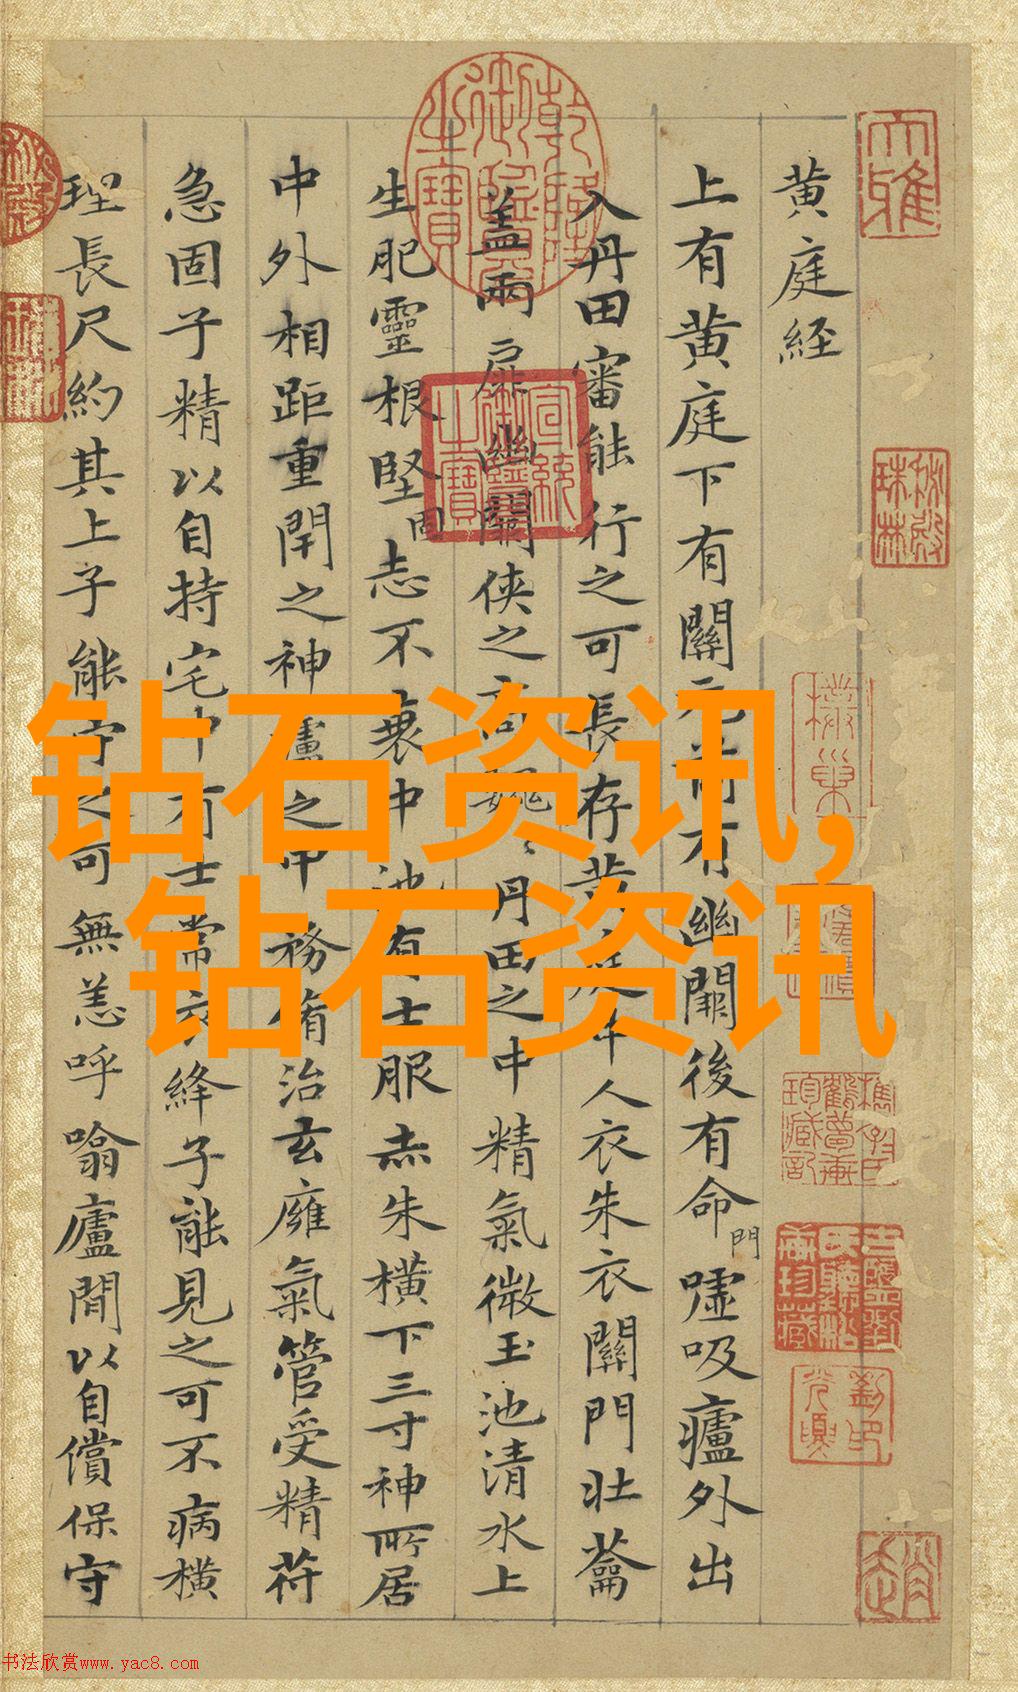 黄庭经
上有黄庭下有關元前有幽闕後有命門嘘吸廬外出
入丹田審能行之可長存黄庭中人衣朱衣關門壮蘥
盖兩扉幽關俠之高巍〻丹田之中精氣微玉池清水上
生肥靈根堅固志不衰中池有士服赤朱横下三寸神所居
中外相距重閈之神廬之中務脩治玄廱氣管受精苻
急固子精以自持宅中有士常衣絳子能見之可不病横
理長尺約其上子能守之可無恙呼噏廬閒以自償保守
乾隆御覽之寶
宣統御覽之寶
大雅
秘殿珠林
钻石资讯,
钻石资讯
书法欣赏www.yac8.com